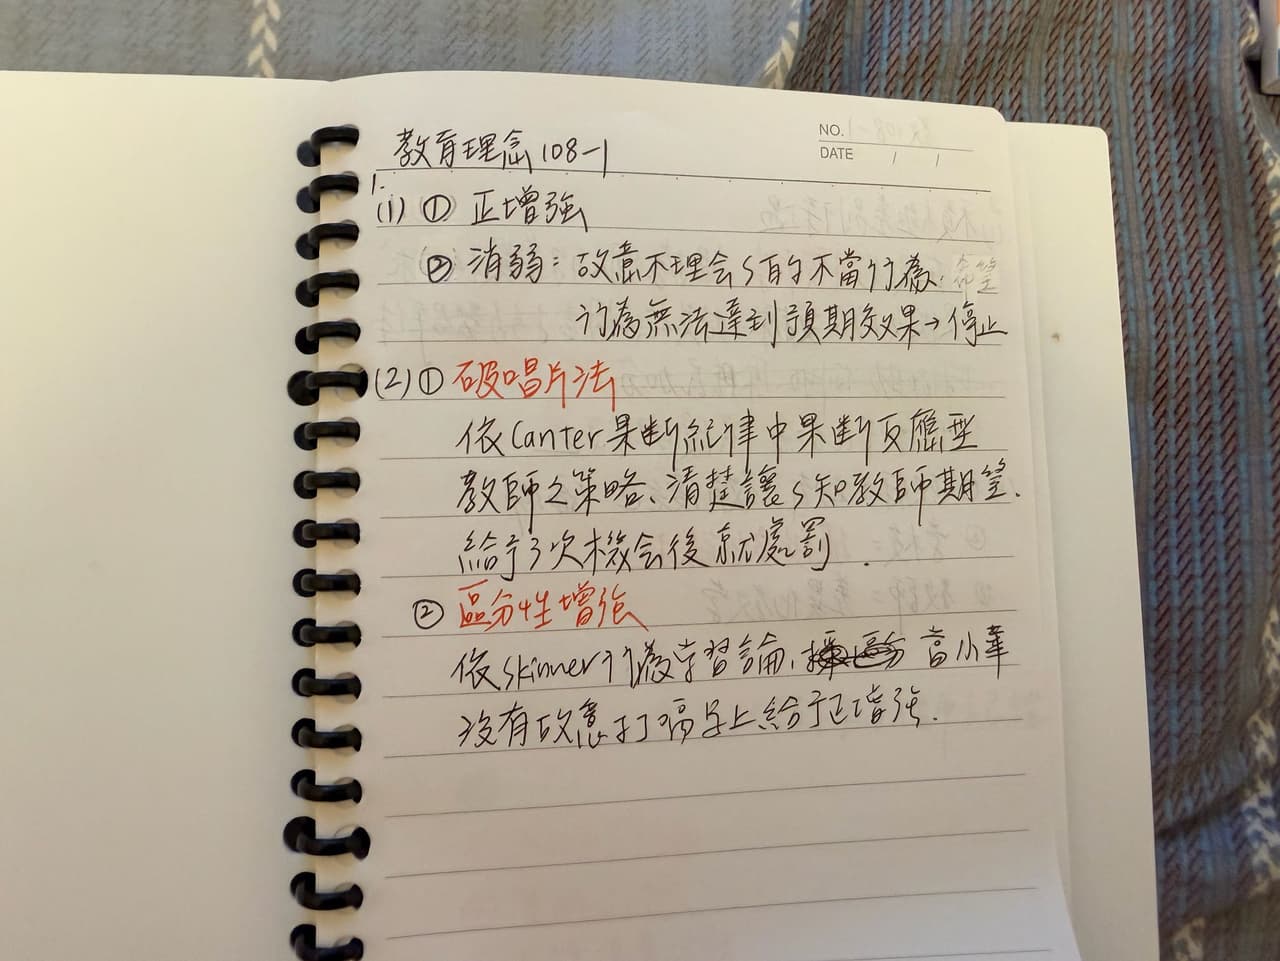 教育理念108-1
NO.
DATE / /
1.
(1) ① 正增強
② 消弱：故意不理会S的不當行為.
行為無法達到預期效果→停止
(2) ① 破唱片法
依Canter果斷紀律中果斷反應型
教師之策略、清楚讓S知教師期望.
給予3次機会後就處罰.
② 區分性增強
依Skinner行為学習論、當小華
沒有故意打隔早上給予正增強.